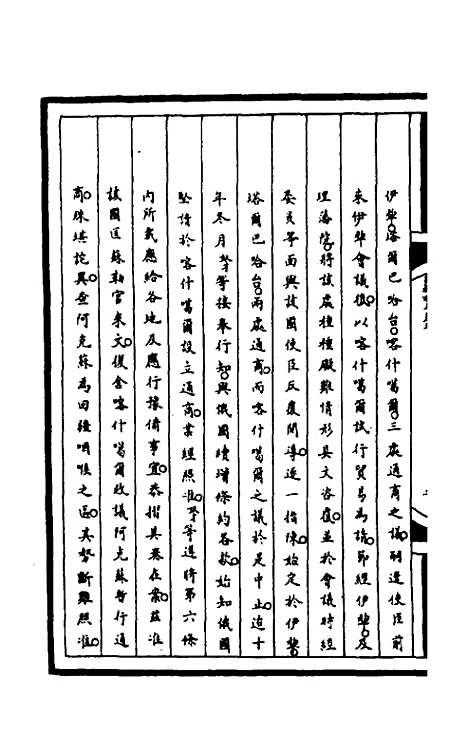 伊犂。塔爾巴哈台。喀什噶爾。三處通商之議。嗣遣使臣前
來伊犂會議。復以喀什噶爾試行貿易爲議。節經伊犂。及
理藩院。將該處種種礙難情形具文咨覆。並於會議時經
委員等面與該國使臣反覆開導。逐一指陳。始定於伊犂。
塔爾巴哈台。兩處通商。而喀什噶爾之議於是中止。迨十
年冬月。等接奉行知。與俄國續增條約各款。始知俄國
堅請於喀什噶爾設立通商。業經照准。等遵將第六條
內所載應給各地及應行豫備事宜。恭摺具奏在案。茲准
該國匡蘇勒官來文。復舍喀什噶爾改議阿克蘇暫行通
商。殊堪詫異。查阿克蘇爲回疆咽喉之區。其勢斷難照准。